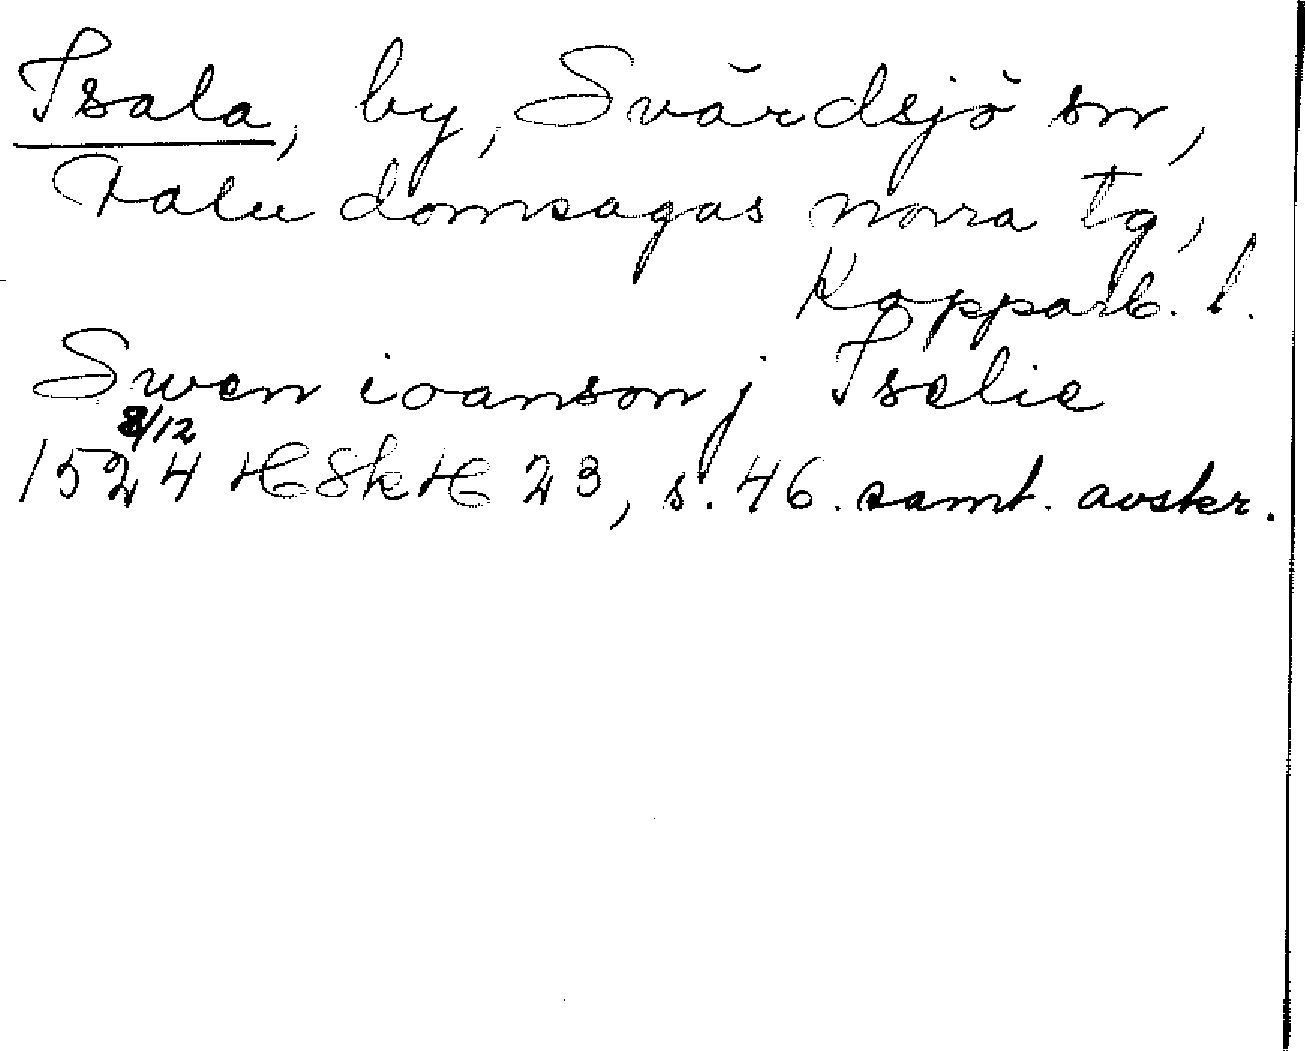 Isala, by, Svärdsjö sn,
Falu domsagas norra tg,
Kopparb. l.
Swen ioanson j Iselie
8/12
1524 HSkH 23, s. 46. samt. avskr.